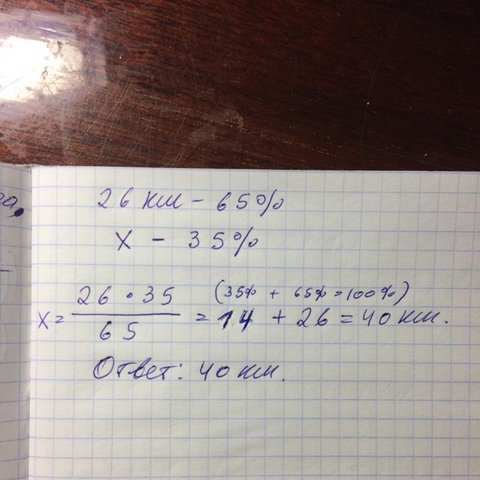 26 км - 65%
x - 35%
(35% + 65% = 100%)
x = 26 • 35 / 65 = 14 + 26 = 40 км.
Ответ: 40 км.